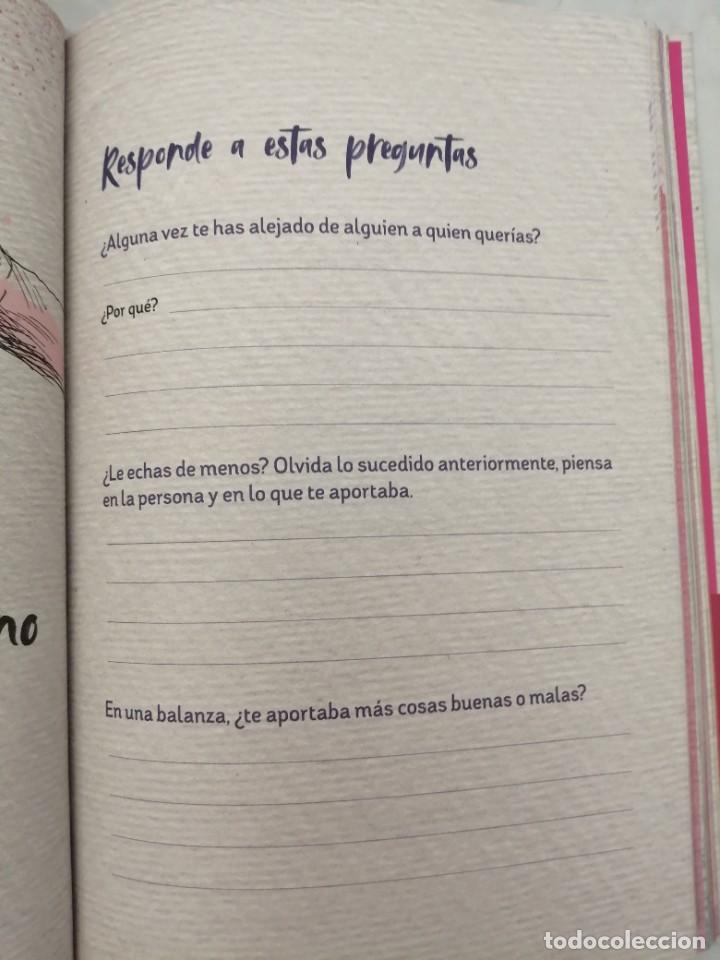 Responde a estas preguntas
¿Alguna vez te has alejado de alguien a quien querías?
¿Por qué?
¿Le echas de menos? Olvida lo sucedido anteriormente, piensa
en la persona y en lo que te aportaba.
no
En una balanza, ¿te aportaba más cosas buenas o malas?
todocoleccion.net